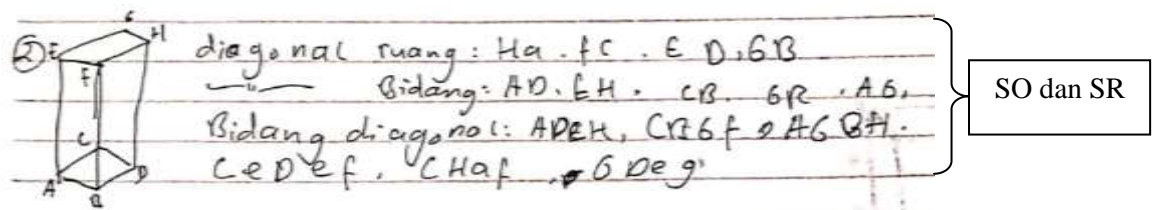 ② E G H
F
C
A B D
diagonal ruang: Ha . fC . E D, GB
—"— Bidang: AD. EH. CB. GR . AG,
Bidang diagonal: ADEH, CBGf, AGBH.
CeDef, CHaf, GDeg
SO dan SR